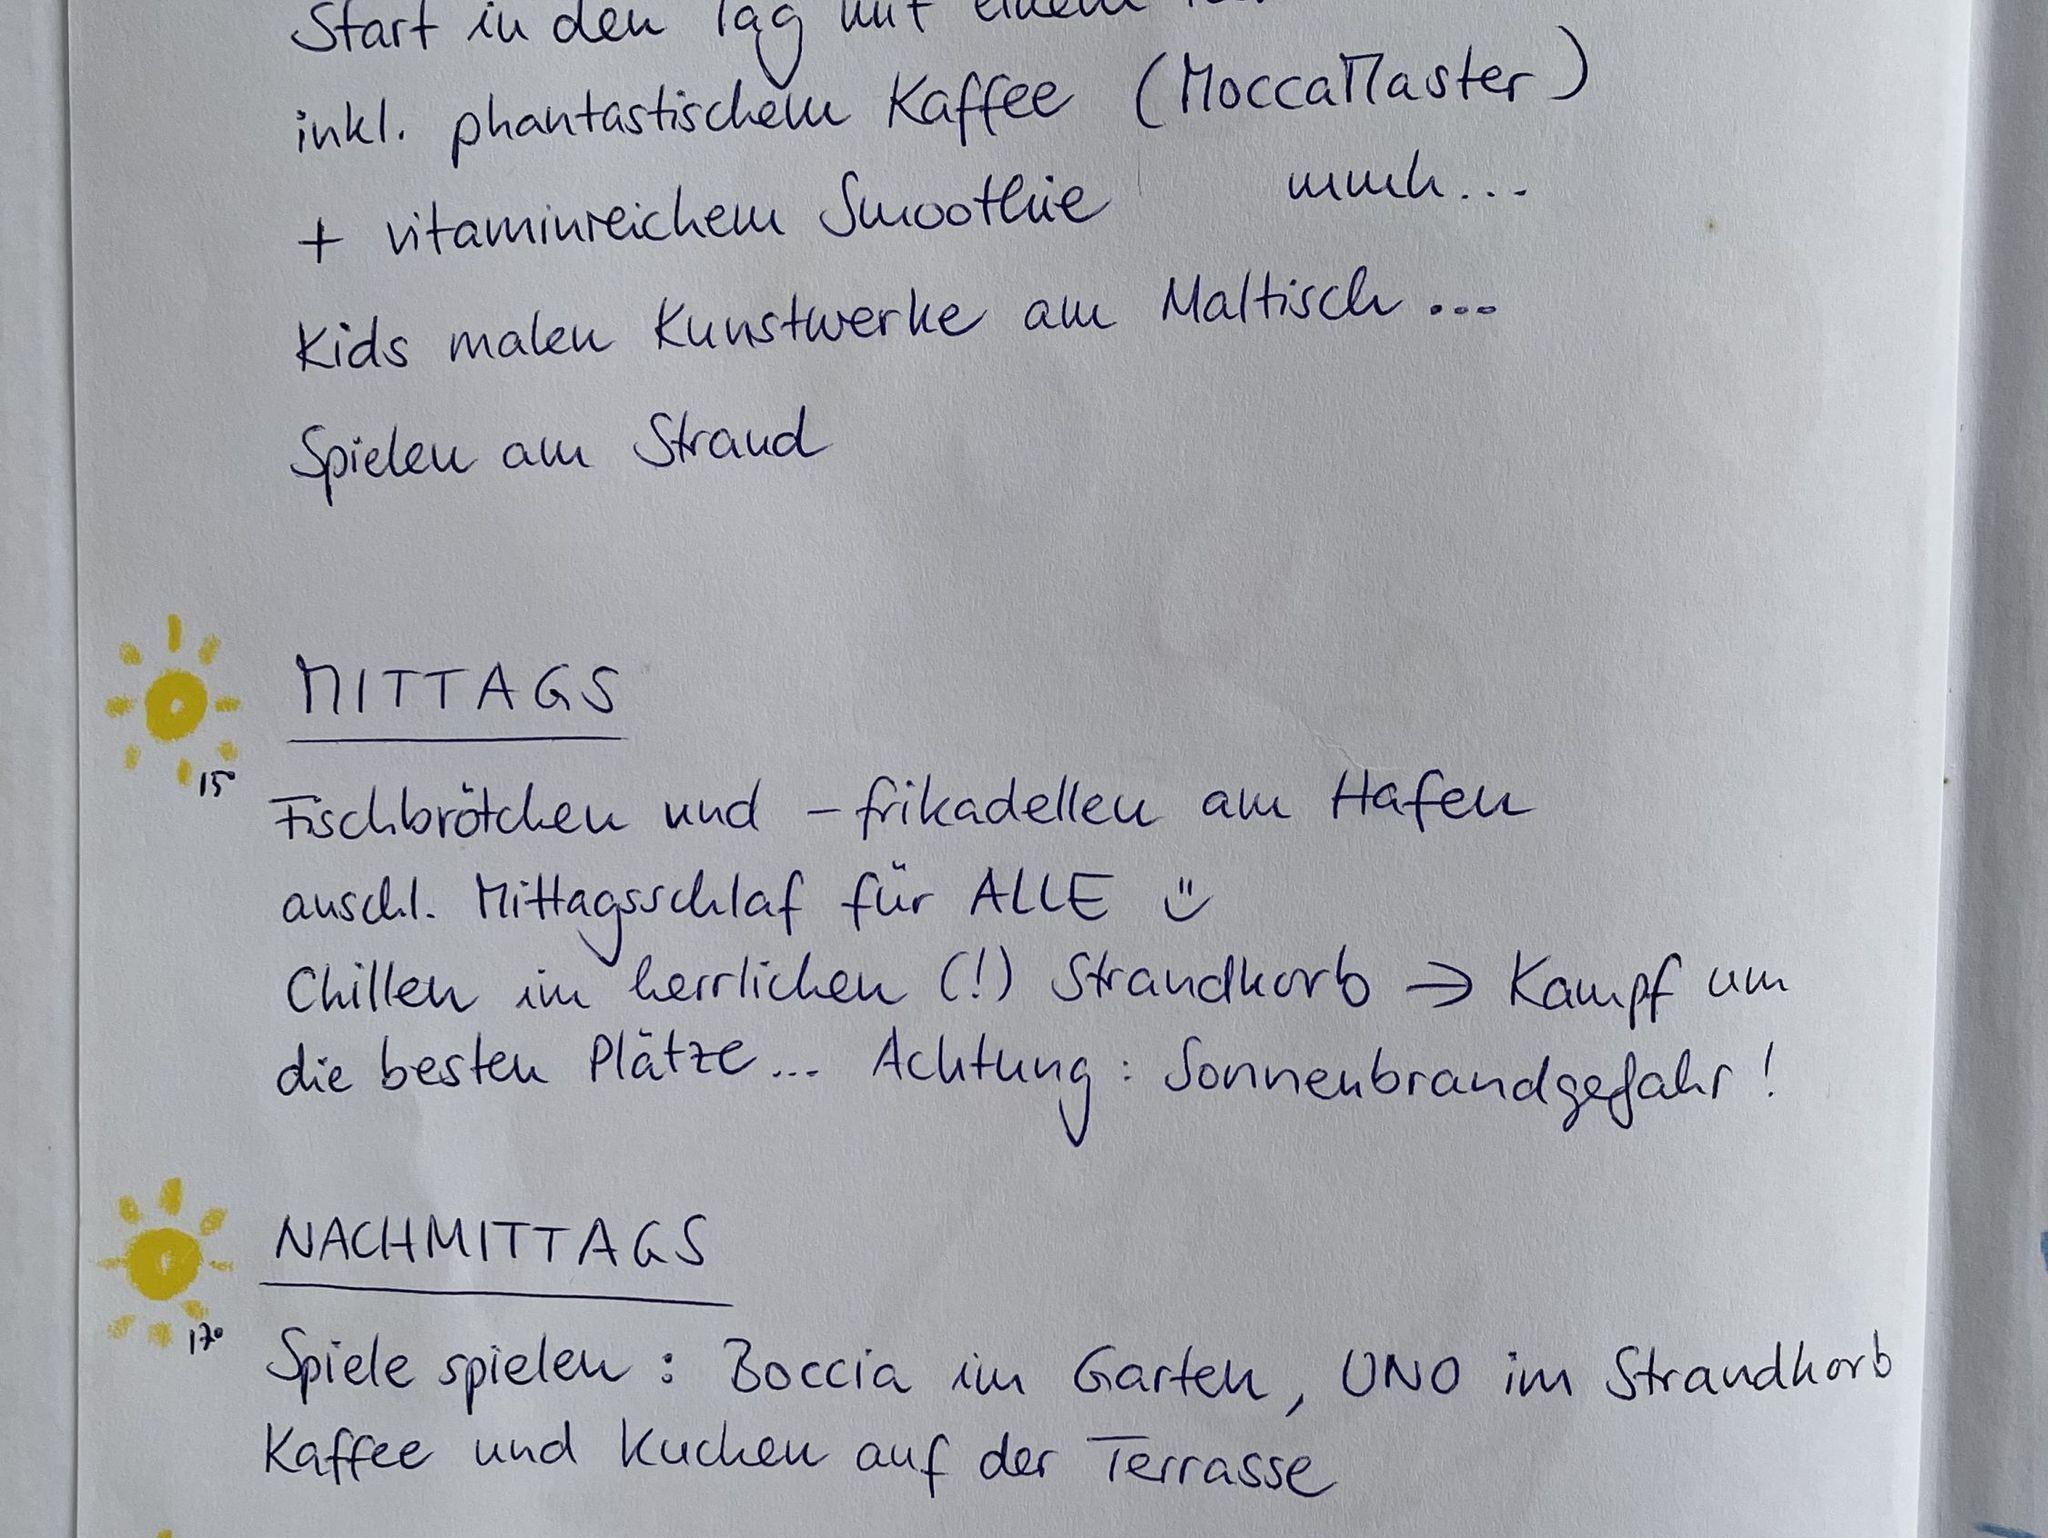 Start in den Tag mit einem
inkl. phantastischem Kaffee (MoccaMaster)
+ vitaminreichem Smoothie mmh...
Kids malen Kunstwerke am Maltisch...
Spielen am Strand
MITTAGS
15°
Fischbrötchen und -frikadellen am Hafen
anschl. Mittagsschlaf für ALLE ü
Chillen im herrlichen (!) Strandkorb → Kampf um
die besten Plätze... Achtung: Sonnenbrandgefahr!
NACHMITTAGS
17°
Spiele spielen: Boccia im Garten, UNO im Strandkorb
Kaffee und Kuchen auf der Terrasse